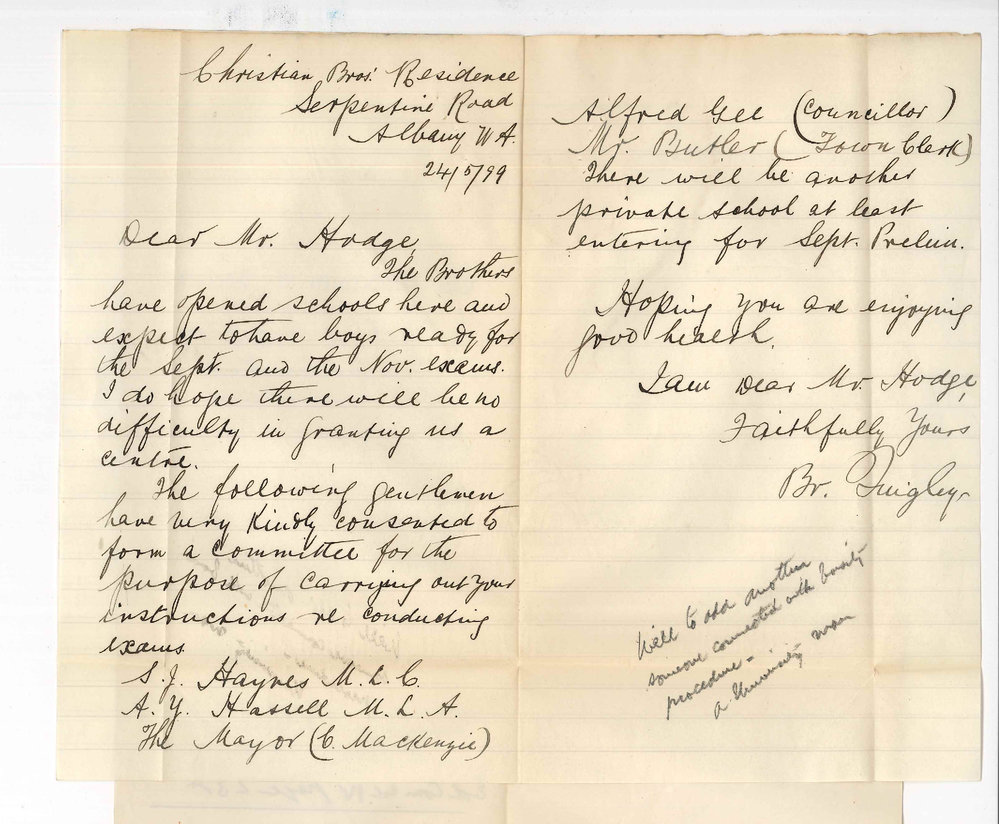 Christian Bros'. Residence
Serpentine Road
Albany W A.
24/5/99
Dear Mr. Hodge,
The Brothers
have opened schools here and
expect to have boys ready for
the Sept. and the Nov. exams.
I do hope there will be no
difficulty in granting us a
centre.
The following gentlemen
have very kindly consented to
form a committee for the
purpose of carrying out your
instructions re conducting
exams
S. J. Haynes M. L. C.
A. Y. Hassell M. L. A.
The Mayor (C. Mackenzie)
Alfred Gee (Councillor)
Mr. Butler (Town Clerk)
There will be another
private school at least
entering for Sept. Prelim.
Hoping you are enjoying
good health.
I am Dear Mr. Hodge,
Faithfully Yours
Br. Quigley.
Well to add another
someone connected with Varsity
procedure -
a University man